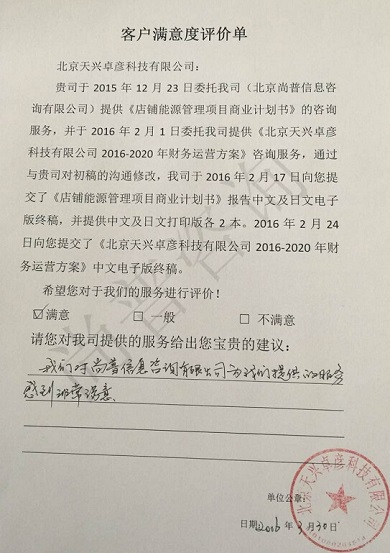 客户满意度评价单
北京天兴卓彦科技有限公司：
贵司于 2015 年 12 月 23 日委托我司（北京尚普信息咨
询有限公司）提供《店铺能源管理项目商业计划书》的咨询
服务，并于 2016 年 2 月 1 日委托我司提供《北京天兴卓彦
科技有限公司 2016-2020 年财务运营方案》咨询服务，通过
与贵司对初稿的沟通修改，我司于 2016 年 2 月 17 日向您提
交了《店铺能源管理项目商业计划书》报告中文及日文电子
版终稿，并提供中文及日文打印版各 2 本。2016 年 2 月 24
日向您提交了《北京天兴卓彦科技有限公司 2016-2020 年财
务运营方案》中文电子版终稿。
希望您对于我们的服务进行评价！
☑满意 □ 一般 □ 不满意
请您对我司提供的服务给出您宝贵的建议：
我们对尚普信息咨询有限公司为我们提供的服务
感到非常满意
单位公章：
日期 2016 年 3 月 30 日
北京天兴卓彦科技有限公司
尚普咨询